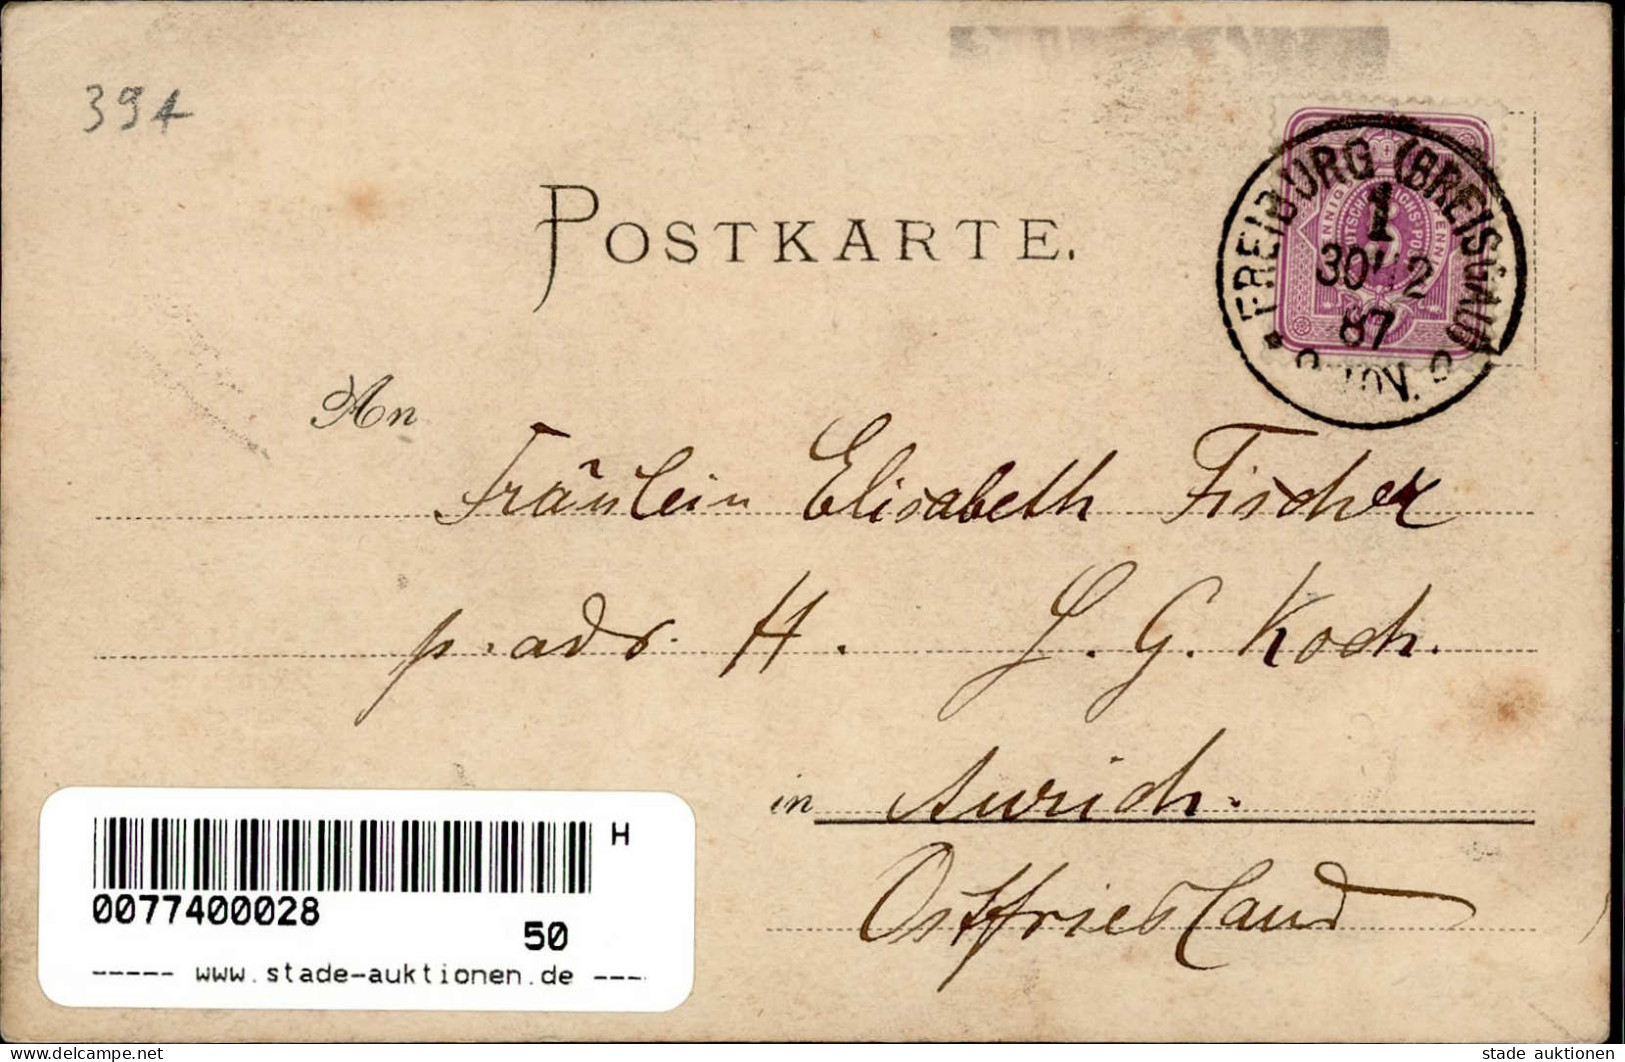 394
POSTKARTE.
FREIBURG (BREISGAU)
1
30 12
87
NOV.
An
Fräulein Elisabeth Fischer
p. adr. H. L. G. Koch.
in Aurich.
Ostfriesland
H
0077400028
50
----- www.stade-auktionen.de ----
www.delcampe.net
stade auktionen